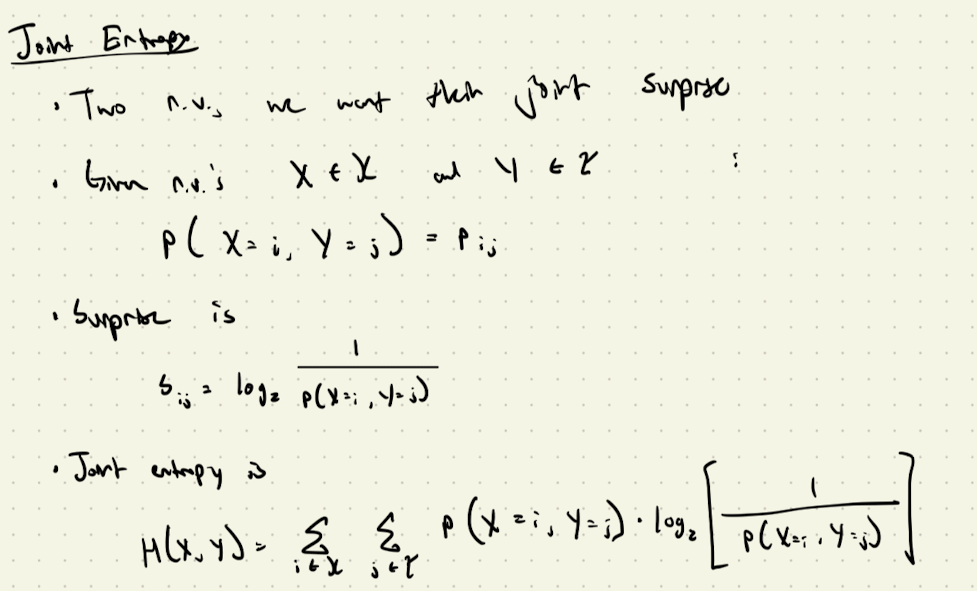 Joint Entropy
• Two r.v., we want their joint surprise
• Given r.v.'s X ∈ 𝒳 and Y ∈ 𝒴 :
P( X=i, Y=j ) = P_ij
• Surprise is
S_ij = log₂ 1 / P(X=i, Y=j)
• Joint entropy is
H(X,Y) = Σ_{i∈𝒳} Σ_{j∈𝒴} P(X=i, Y=j) · log₂ [ 1 / P(X=i, Y=j) ]